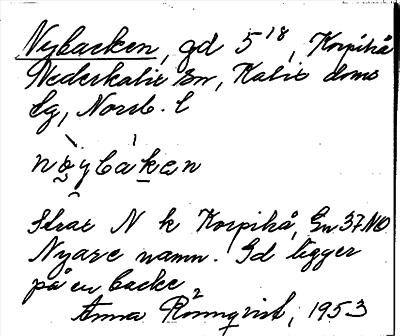 Nybacken, gd 5¹⁸, Korpikå
Nederkalix sn, Kalix doms
lg, Norrb. l
nø̀ybáken
strax N k Korpikå, Ek 37 NO
Nyare namn. Gd ligger
på en backe
Anna Rönnqvist, 1953